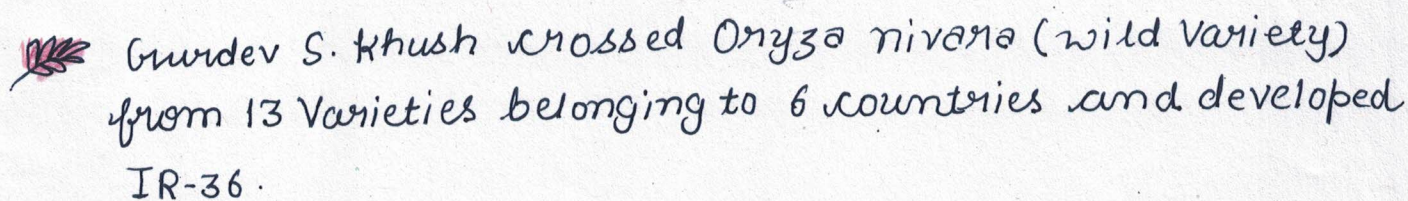 Gurdev S. Khush crossed Oryza nivara (wild Variety)
from 13 Varieties belonging to 6 countries and developed
IR-36.